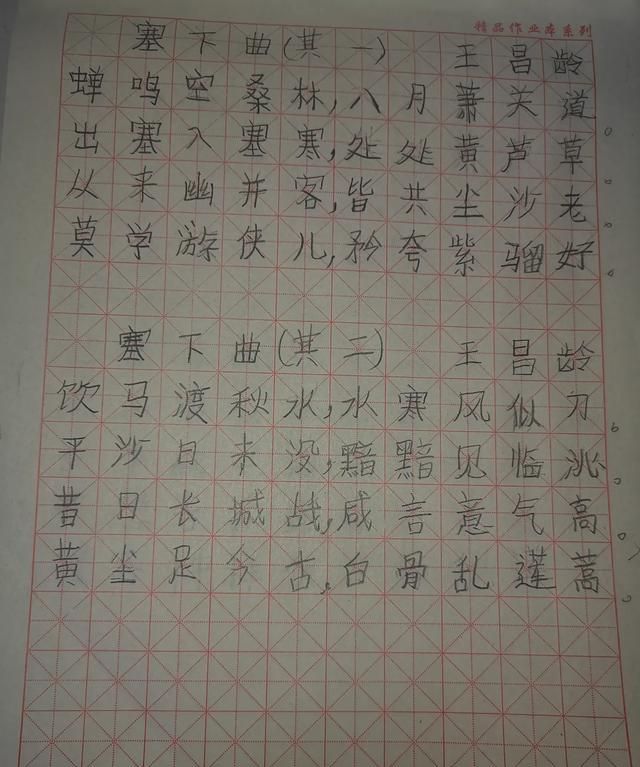 精品作业本系列
塞下曲(其一) 王昌龄
蝉鸣空桑林,八月萧关道。
出塞入塞寒,处处黄芦草。
从来幽并客,皆共尘沙老。
莫学游侠儿,矜夸紫骝好。
塞下曲(其二) 王昌龄
饮马渡秋水,水寒风似刀。
平沙日未没,黯黯见临洮。
昔日长城战,咸言意气高。
黄尘足今古,白骨乱蓬蒿。